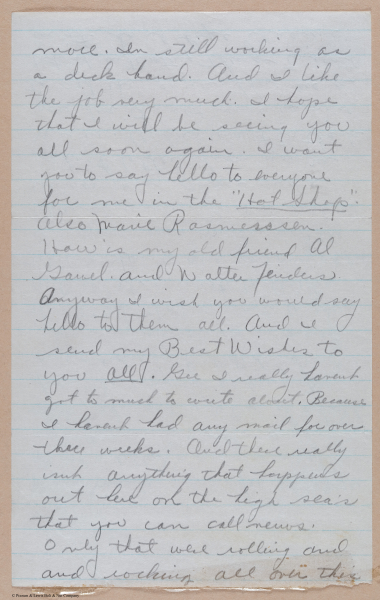 more. Im still working as
a deck hand. And I like
the job very much. I hope
that I will be seeing you
all soon again. I want
you to say hello to everyone
for me in the "Hat Shop".
also Marie Rasmesssen.
How is my old friend Al
and Walter Fenders
Anyway I wish you would say
hello to them all. And I
send my Best Wishes to
you all. Gee I really havent
got to much to write about. Because
I havent had any mail for over
three weeks. And there really
isnt anything that happens
out here on the high sea's
that you can call news.
Only that were rolling and
and rocking all over this